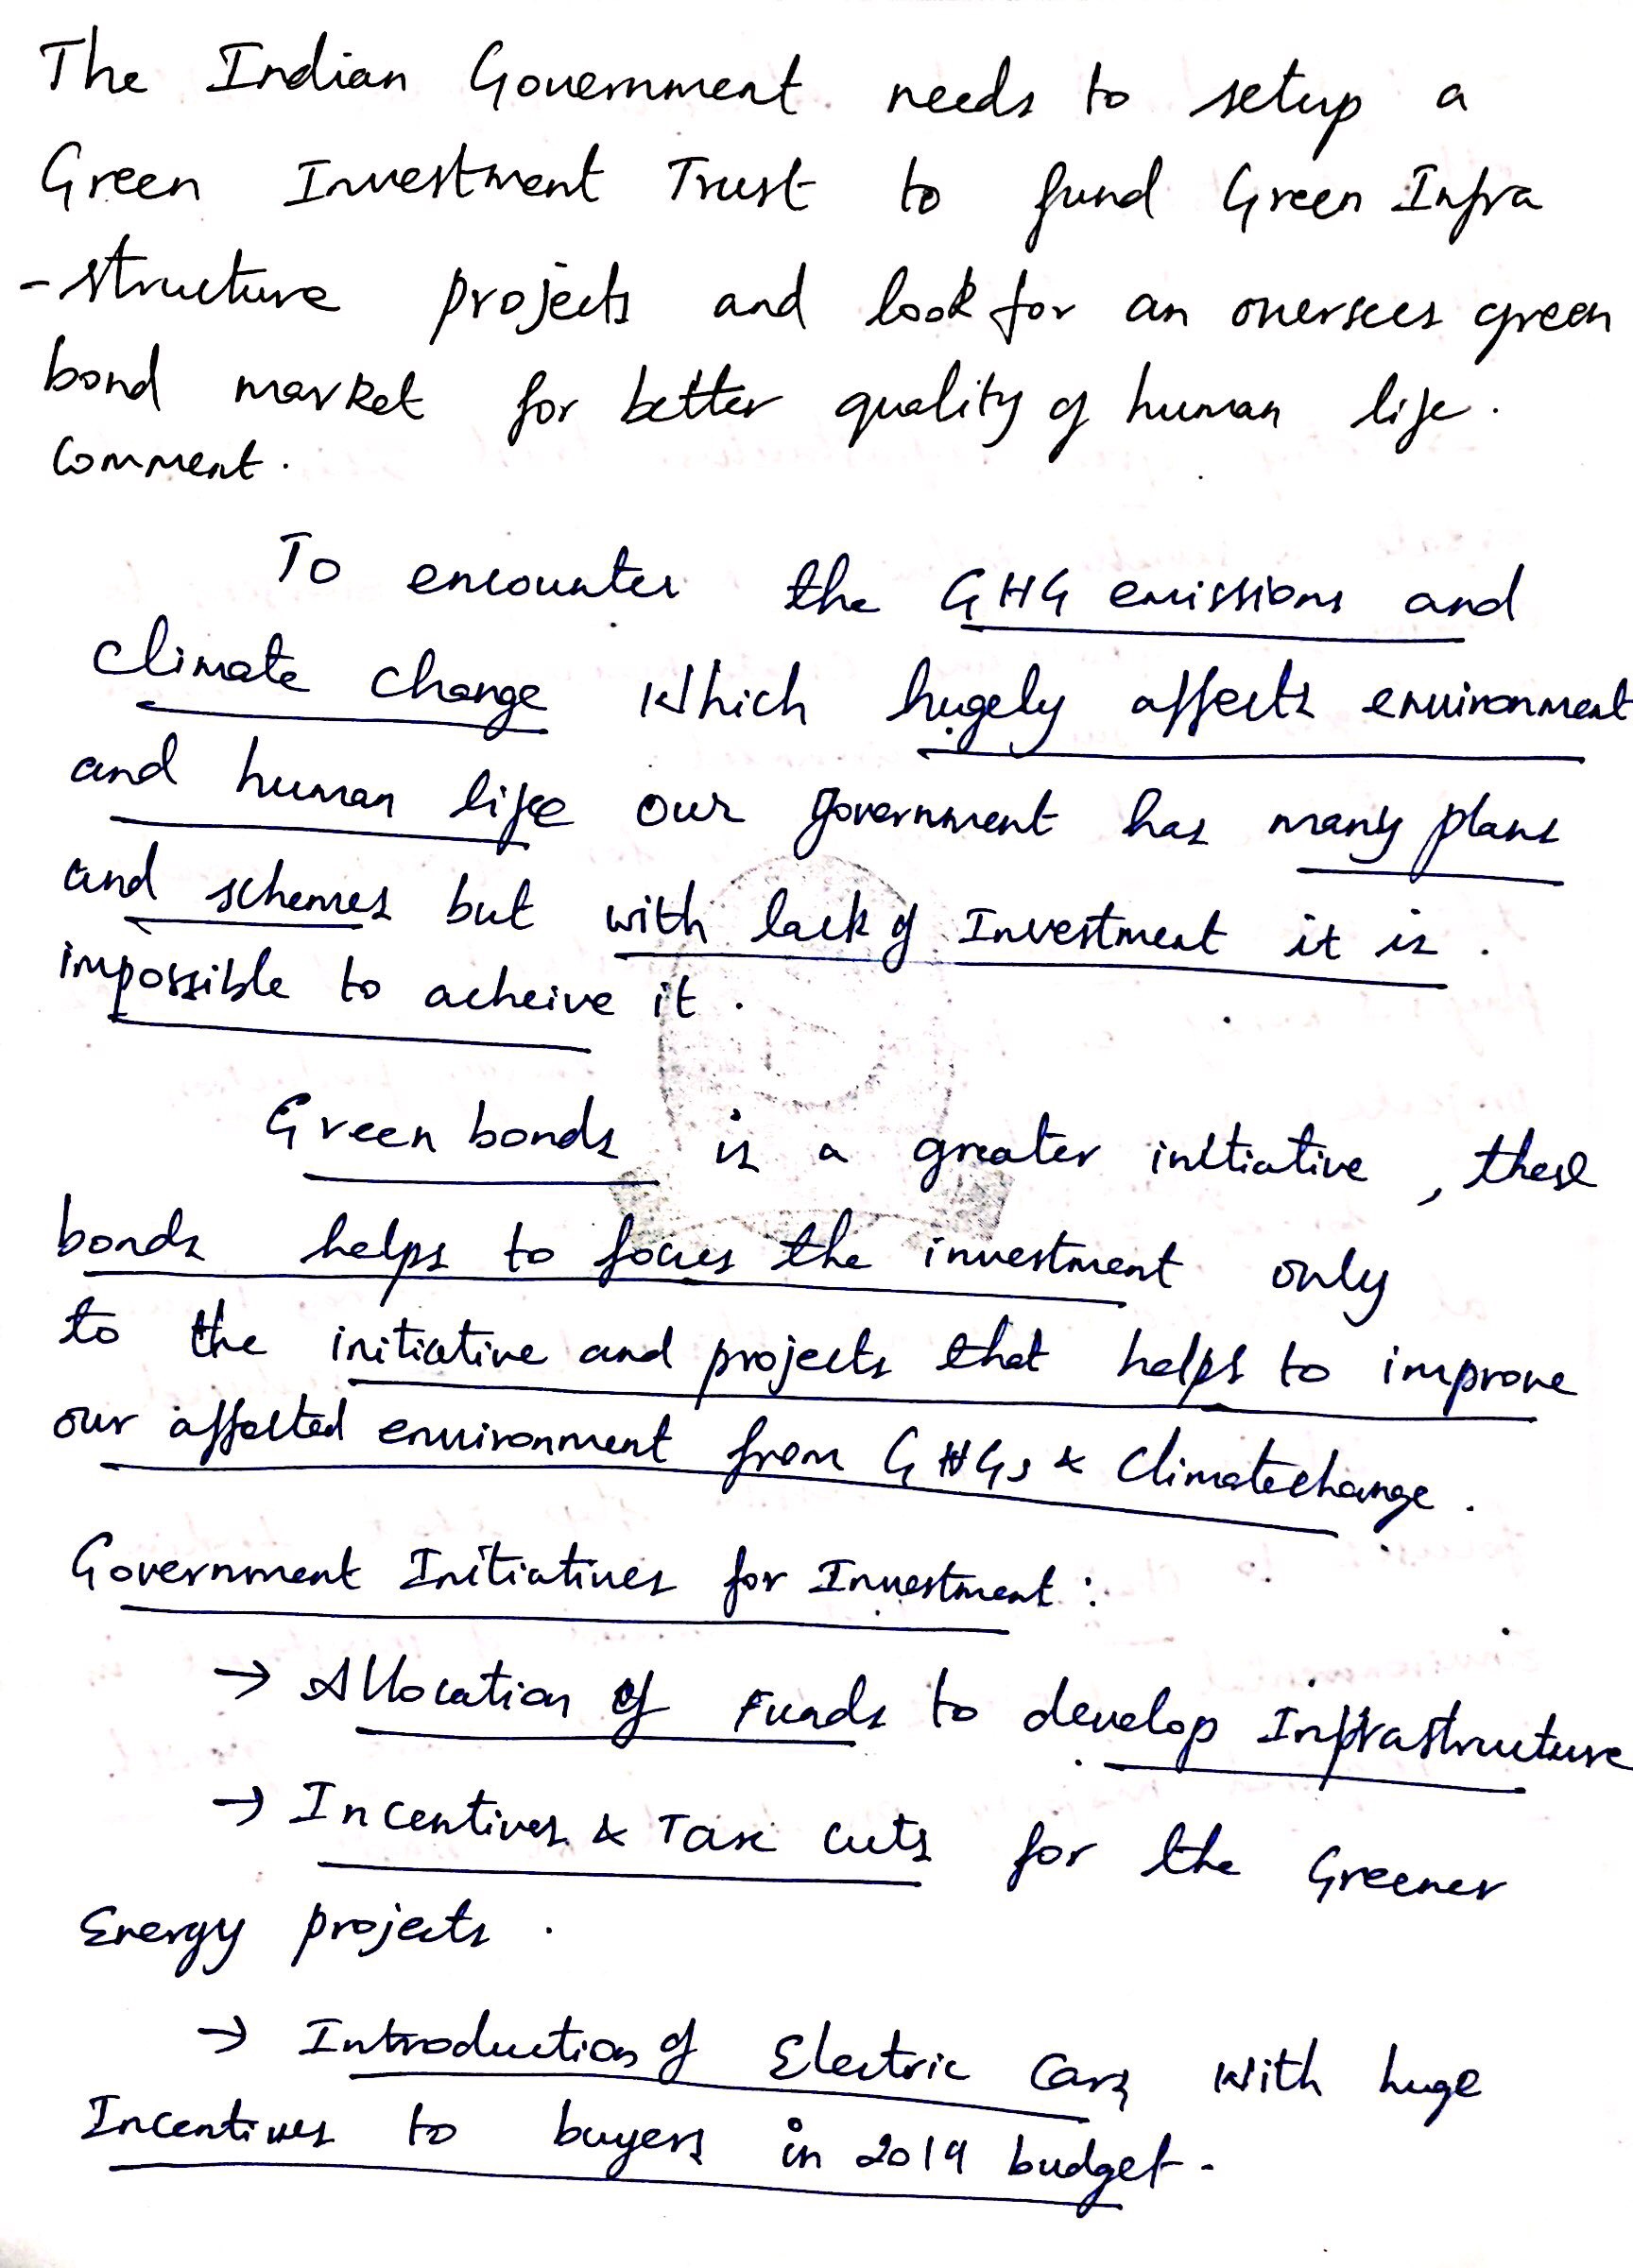 The Indian Government needs to setup a
Green Investment Trust to fund Green Infra
-structure projects and look for an oversees green
bond market for better quality of human life.
Comment.
To encounter the GHG emissions and
climate change which hugely affects environment
and human life our government has many plans
and schemes but with lack of Investment it is.
impossible to acheive it.
Green bonds is a greater initiative, these
bonds helps to focus the investment only
to the initiative and projects that helps to improve
our affected environment from GHGs & Climatechange.
Government Initiatives for Investment:
→ Allocation of Funds to develop Infrastructure
→ Incentives & Tax cuts for the Greener
Energy projects.
→ Introduction of Electric Cars with huge
Incentives to buyers in 2019 budget.